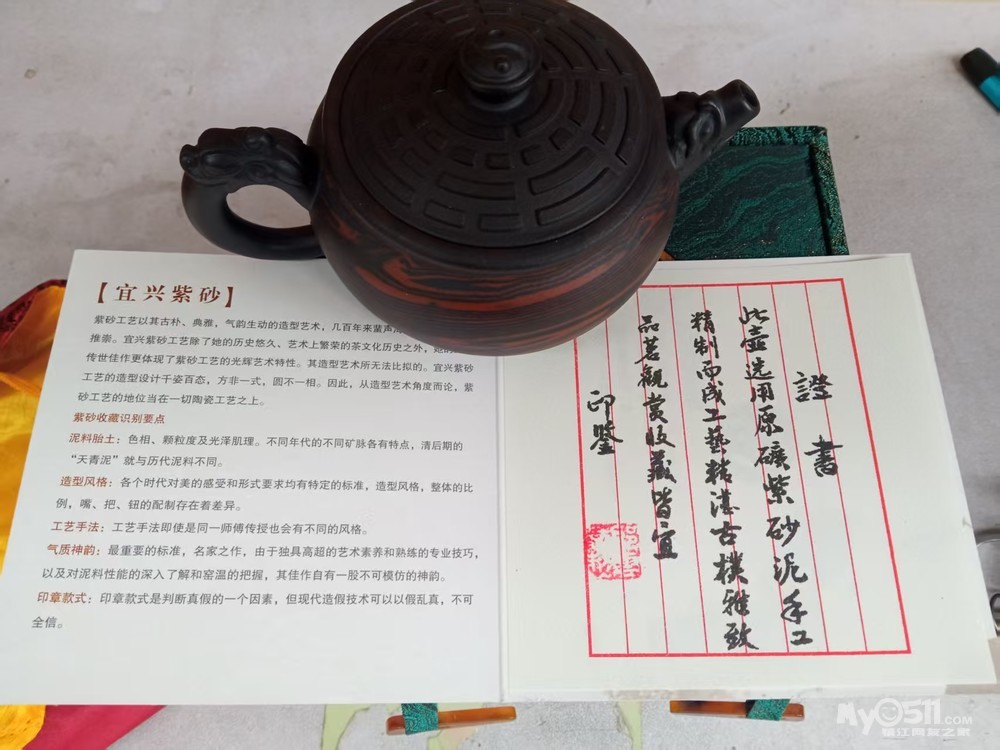 【宜兴紫砂】
紫砂工艺以其古朴、典雅，气韵生动的造型艺术，几百年来蜚声
推崇。宜兴紫砂工艺除了她的历史悠久、艺术上繁荣的茶文化历史之外，她的
传世佳作更体现了紫砂工艺的光辉艺术特性。其造型艺术所无法比拟的。宜兴紫砂
工艺的造型设计千姿百态，方非一式，圆不一相。因此，从造型艺术角度而论，紫
砂工艺的地位当在一切陶瓷工艺之上。
紫砂收藏识别要点
泥料胎土：色相、颗粒度及光泽肌理。不同年代的不同矿脉各有特点，清后期的
“天青泥”就与历代泥料不同。
造型风格：各个时代对美的感受和形式要求均有特定的标准，造型风格，整体的比
例，嘴、把、钮的配制存在着差异。
工艺手法：工艺手法即使是同一师傅传授也会有不同的风格。
气质神韵：最重要的标准，名家之作，由于独具高超的艺术素养和熟练的专业技巧，
以及对泥料性能的深入了解和窑温的把握，其佳作自有一股不可模仿的神韵。
印章款式：印章款式是判断真假的一个因素，但现代造假技术可以以假乱真，不可
全信。
證書
此壺选用原礦紫砂泥手工
精制而成工藝精湛古樸雅致
品茗觀赏收藏皆宜
印鉴
My0511.COM
镇江网友之家